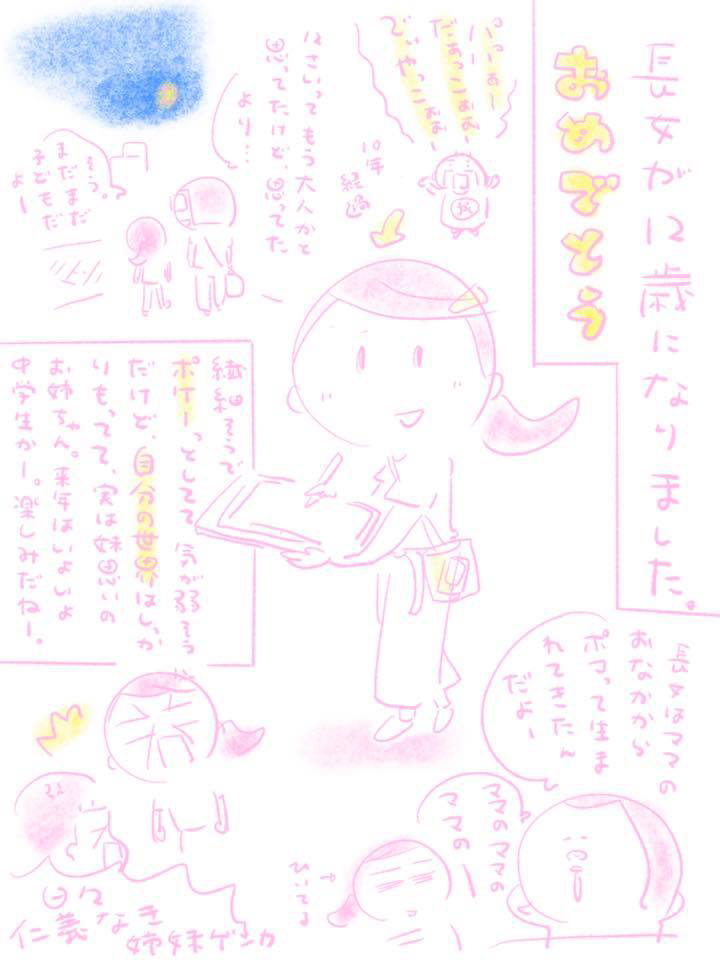 長女が12歳になりました。
おめでとう
パパぁー
だぁっこぉぉ
でぃやっこぉぉ
10年
経過
12さいってもう大人かと
思ってたけど、思ってた
より…
そう。
まだまだ
子どもだ
よー
繊細そうで
ポケーっとしてて気が弱そう
だけど、自分の世界はしっか
りもってて、実は妹思いの
お姉ちゃん。来年はいよいよ
中学生かー。楽しみだねー。
長女はママの
おなかから
ポコって生ま
れてきたん
だよー
ママのママの
ママのー
ひいてる
日々
仁義なき姉妹ゲンカ